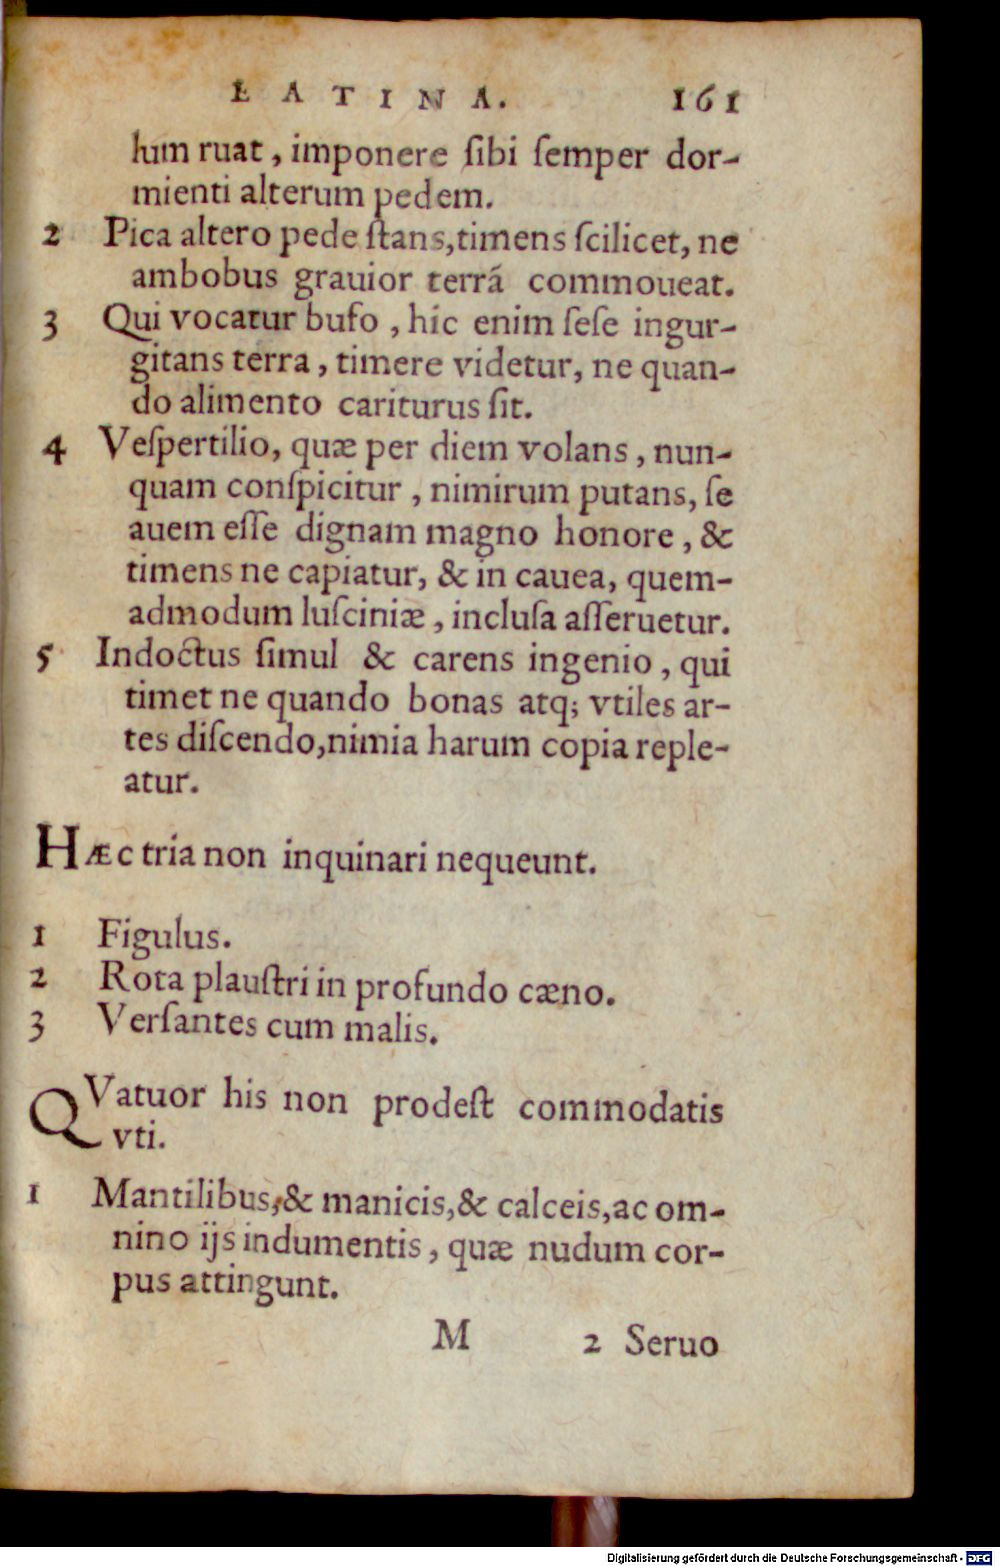 LATINA. 161
lum ruat, imponere ſibi ſemper dor-
mienti alterum pedem.
2 Pica altero pede ſtans, timens ſcilicet, ne
ambobus grauior terrá commoueat.
3 Qui vocatur bufo, hic enim ſeſe ingur-
gitans terra, timere videtur, ne quan-
do alimento cariturus ſit.
4 Veſpertilio, quæ per diem volans, nun-
quam conſpicitur, nimirum putans, ſe
auem eſſe dignam magno honore, &
timens ne capiatur, & in cauea, quem-
admodum luſciniæ, incluſa aſſeruetur.
5 Indoctus ſimul & carens ingenio, qui
timet ne quando bonas atq; vtiles ar-
tes diſcendo, nimia harum copia reple-
atur.
HÆc tria non inquinari nequeunt.
1 Figulus.
2 Rota plauſtri in profundo cæno.
3 Verſantes cum malis.
QVatuor his non prodeſt commodatis
vti.
1 Mantilibus, & manicis, & calceis, ac om-
nino ijs indumentis, quæ nudum cor-
pus attingunt.
M 2 Seruo
Digitalisierung gefördert durch die Deutsche Forschungsgemeinschaft - DFG